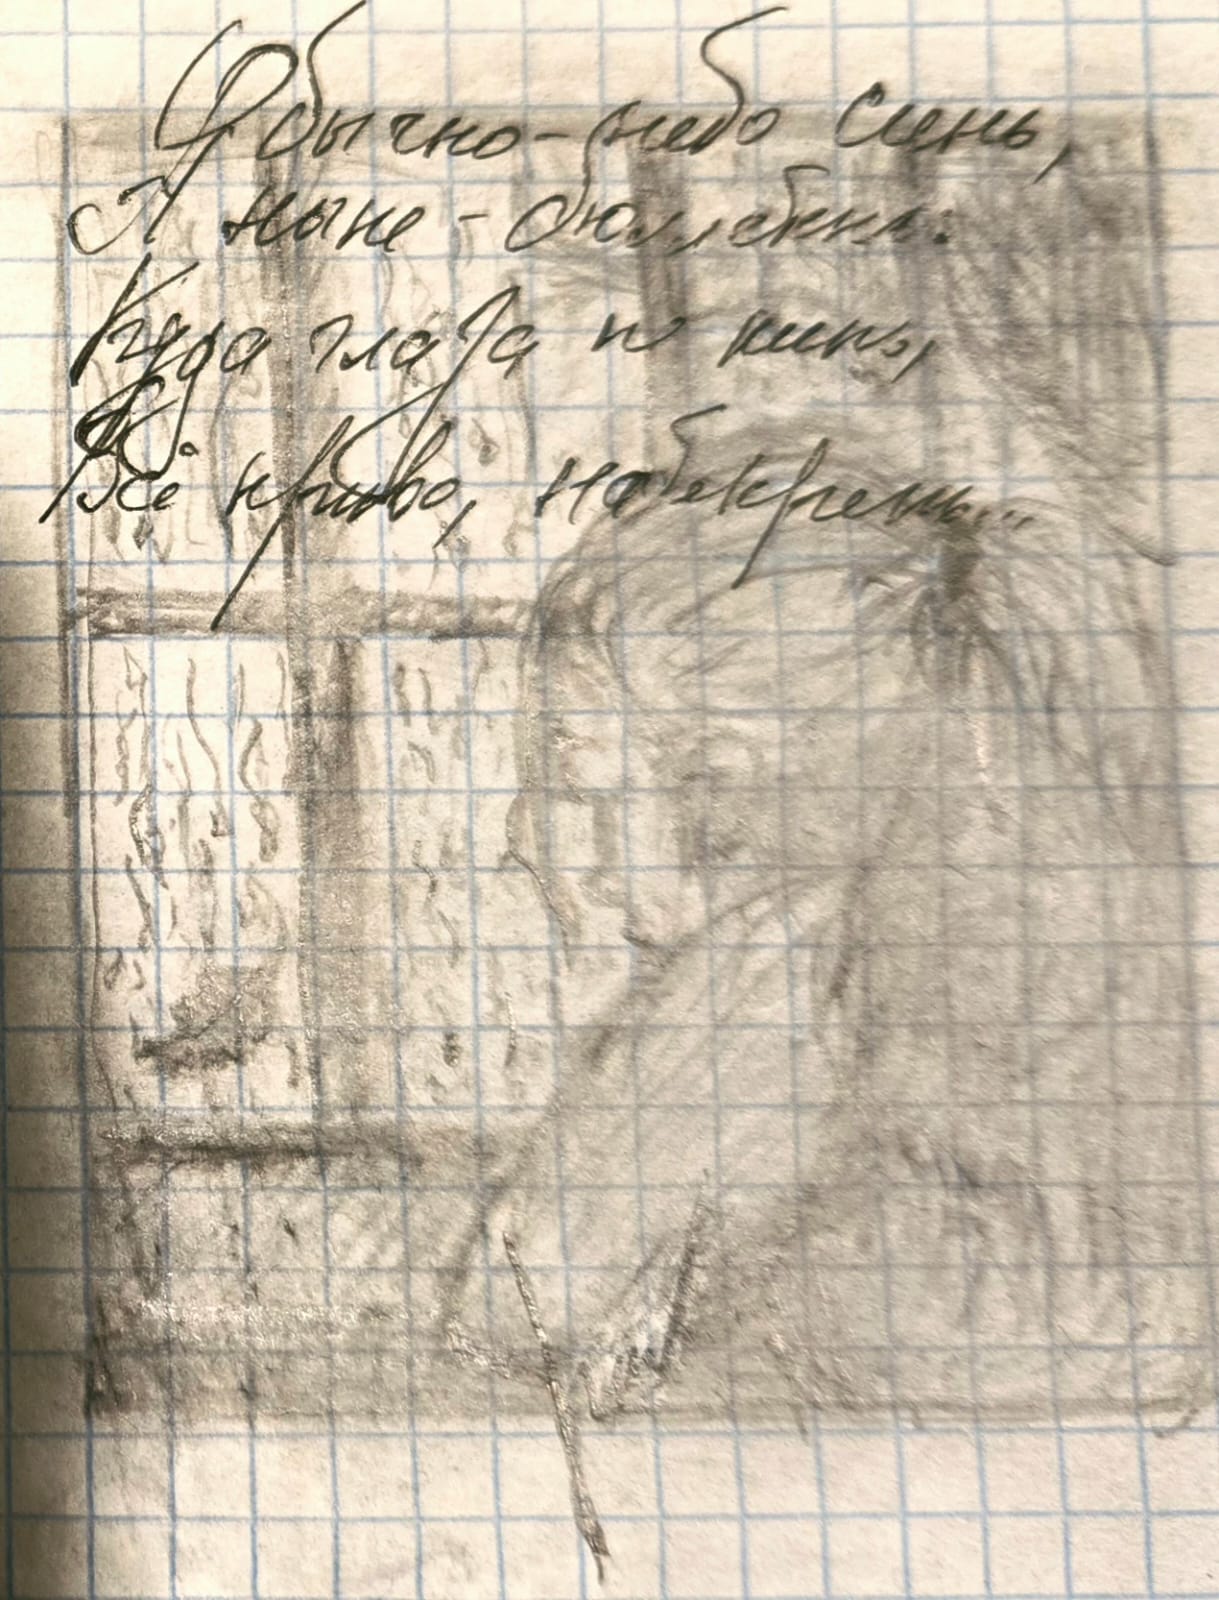 Обычно - небо синь,
А ныне -
Куда глаза не кинь,
Всё криво, набекрень...